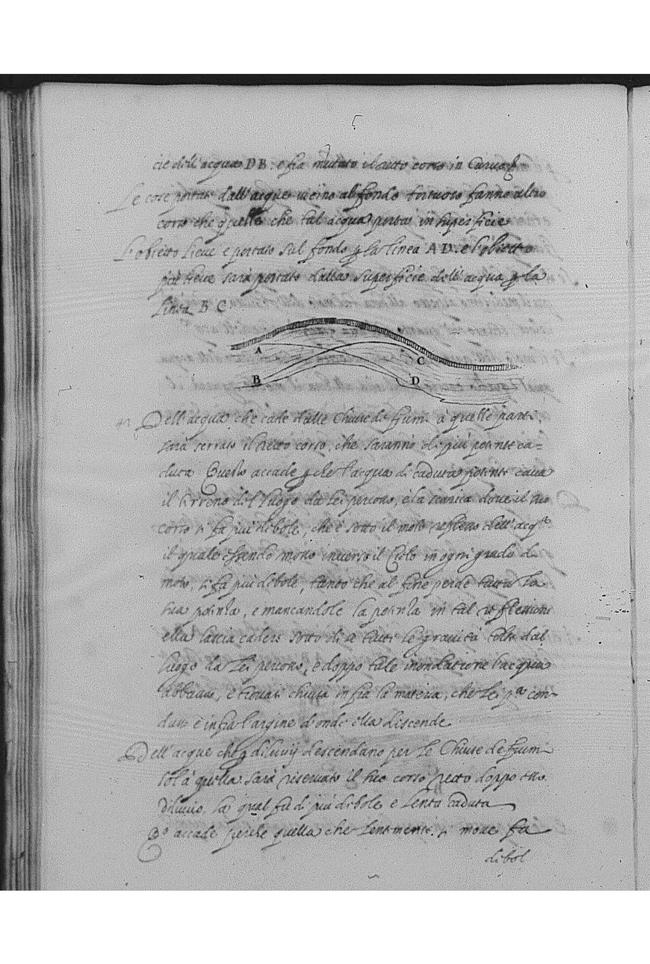 cie dell'acqua DB. e sia mutato il retto corso in curuo
Le cose portate dall'acque uicino al fondo tortuoso fanno altro
corso che quelle che tal acqua porta in superficie
L'obietto lieue e portato sul fondo p la linea A D. e l'obietto
piu lieue sara portato dalla superficie dell'acqua p la
linea B C
A
C
B
D
Dell'acqua che cade dalle Chiuse de fiumi a quelle parti
sara serrato il retto corso, che saranno di piu potente ca-
duta Questo accade p che l'acqua di caduta potente caua
il terreno del luogo da lei percosso, e la scarica doue il suo
corso si fa piu debole, che è sotto il moto reflesso dell'acq.
il quale essendo mosso inuerso il Cielo in ogni grado di
moto, si fa piu debole, tanto che al fine perde tutta la
sua potentia, e mancandole la potentia in tal reflessione
ella lascia cadere sotto di se tutte le grauità tolte dal
luogo da lei percosso, e doppo tale inondatione l'acqua
abbassa, e trouasi chiusa infra la materia, che lei p.a con-
dusse e infra l'argine d'onde ella discende
Dell'acque che p diluuij descendano per le Chiuse de fiumi
sol a quella sarà riseruato il suo corso retto doppo esso
diluuio, la qual fu di piu debole e lenta caduta
Q.o accade perche quella che lentamente si moue fa
debol